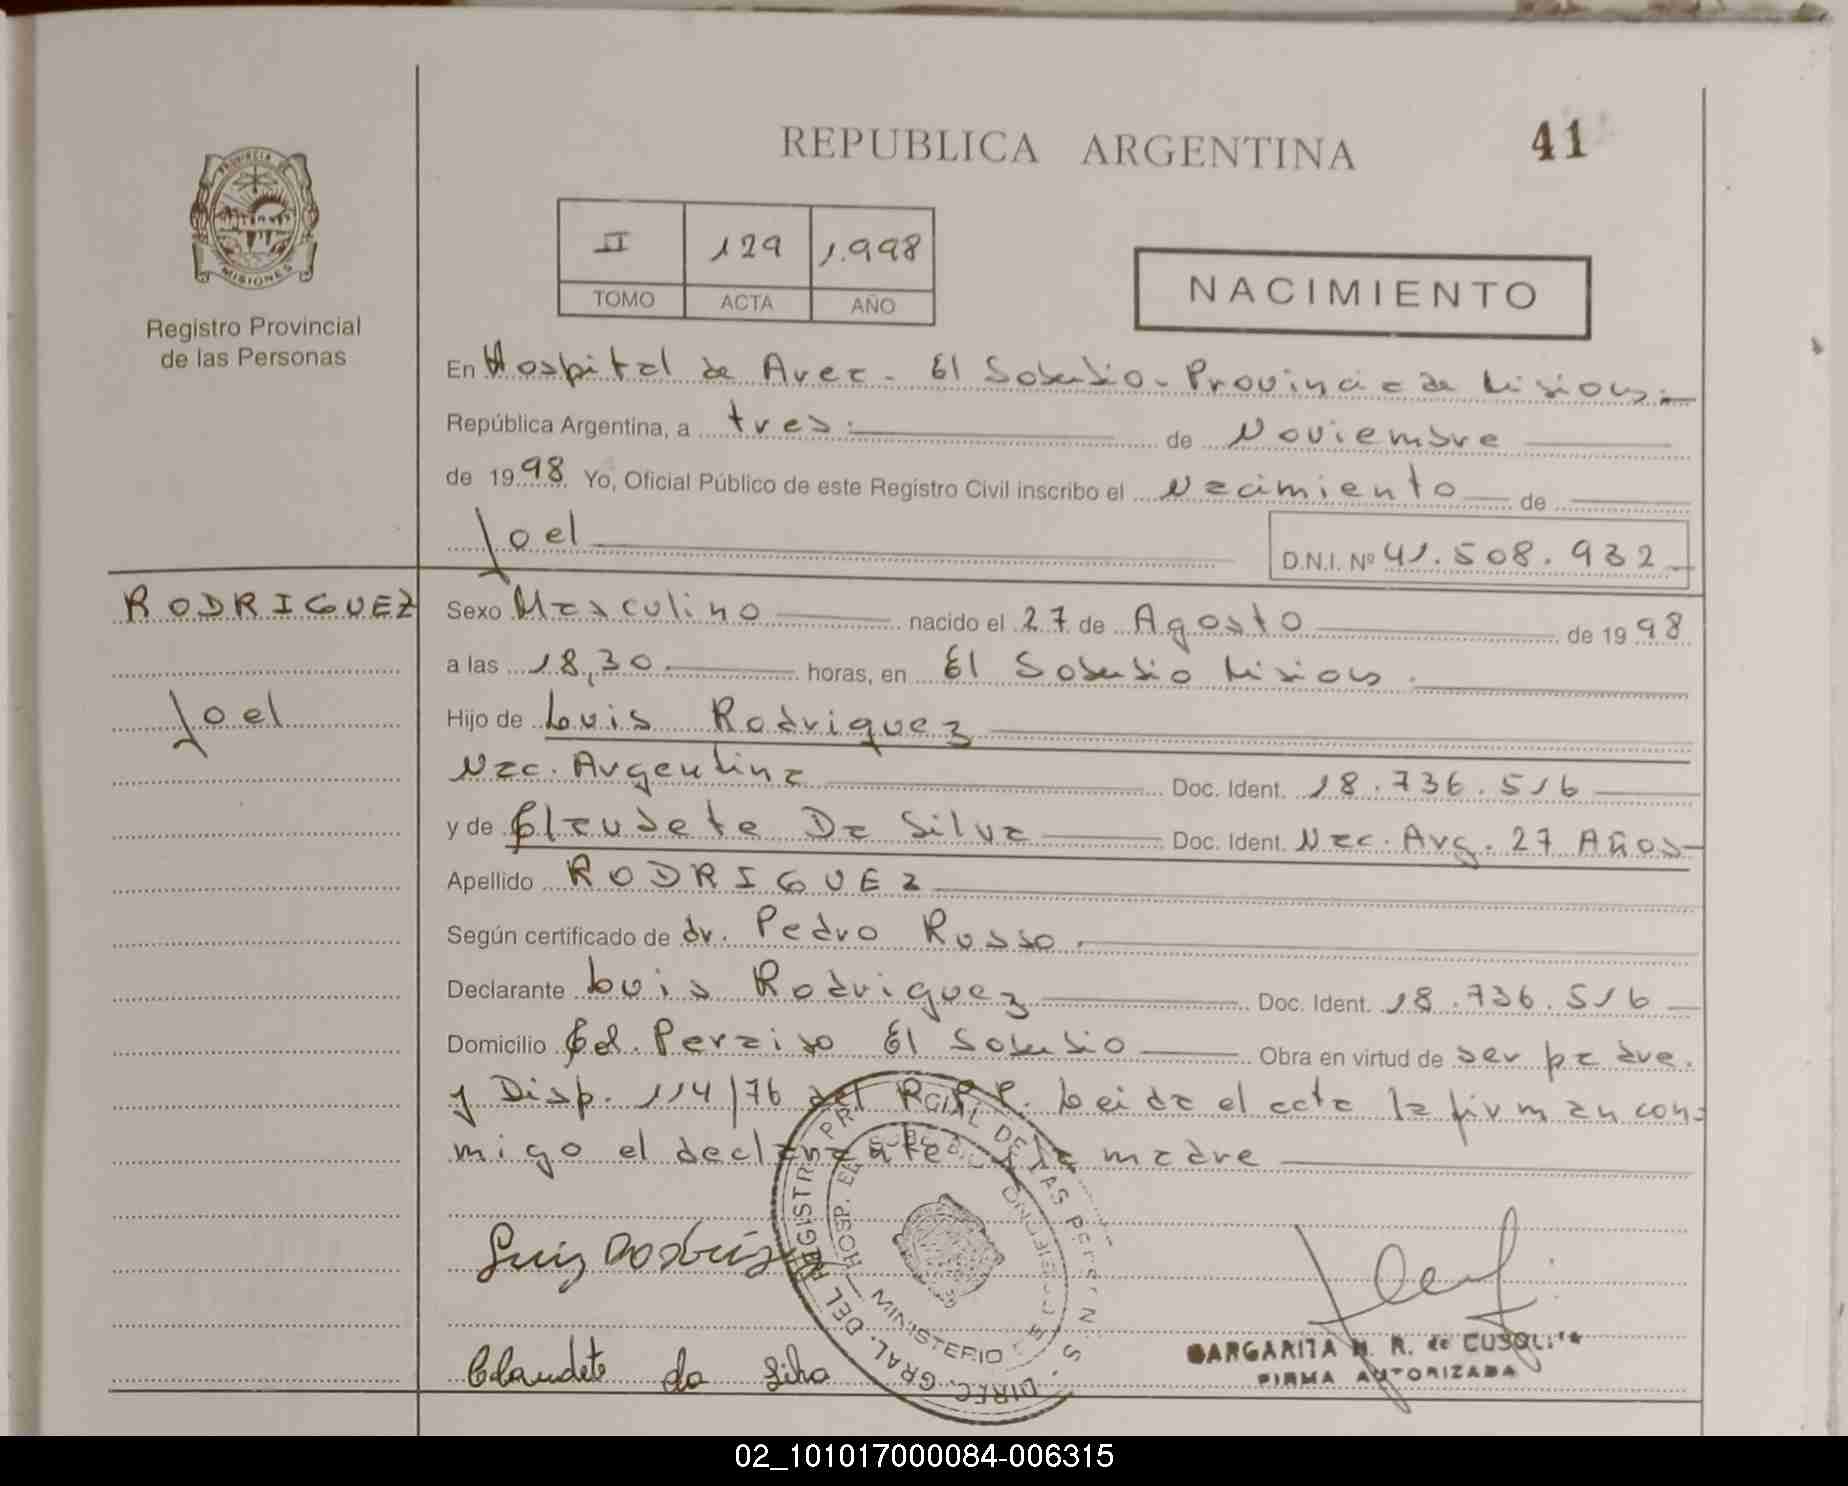 REPUBLICA ARGENTINA
41
PROVINCIA DE
MISIONES
Registro Provincial
de las Personas
II 129 1.998
TOMO ACTA AÑO
NACIMIENTO
En Hospital de Area - El Soberbio - Provincia de Misiones.
República Argentina, a tres. de Noviembre
de 1998 Yo, Oficial Público de este Registro Civil inscribo el Nacimiento de
Joel
D.N.I. Nº 41.508.932
RODRIGUEZ
Joel
Sexo Masculino nacido el 27 de Agosto de 1998
a las 18,30 horas, en El Soberbio Misiones.
Hijo de Luis Rodriguez
Nac. Argentina Doc. Ident. 18.736.516
y de Claudete Da Silva Doc. Ident. Nac. Arg. 27 Años
Apellido RODRIGUEZ
Según certificado de dr. Pedro Russo.
Declarante Luis Rodriguez Doc. Ident. 18.736.516
Domicilio Col. Paraiso El Soberbio Obra en virtud de ser padre.
y Disp. 114/76 del R.P.P. Leida el acta la firman con-
migo el declarante y la madre
DIREC. GRAL. DEL REGISTRO PRCIAL DE LAS PERSONAS
HOSP.
MINISTERIO DE GOBIERNO
Claudete da Silva
MARGARITA N. R. de
FIRMA AUTORIZADA
02_101017000084-006315